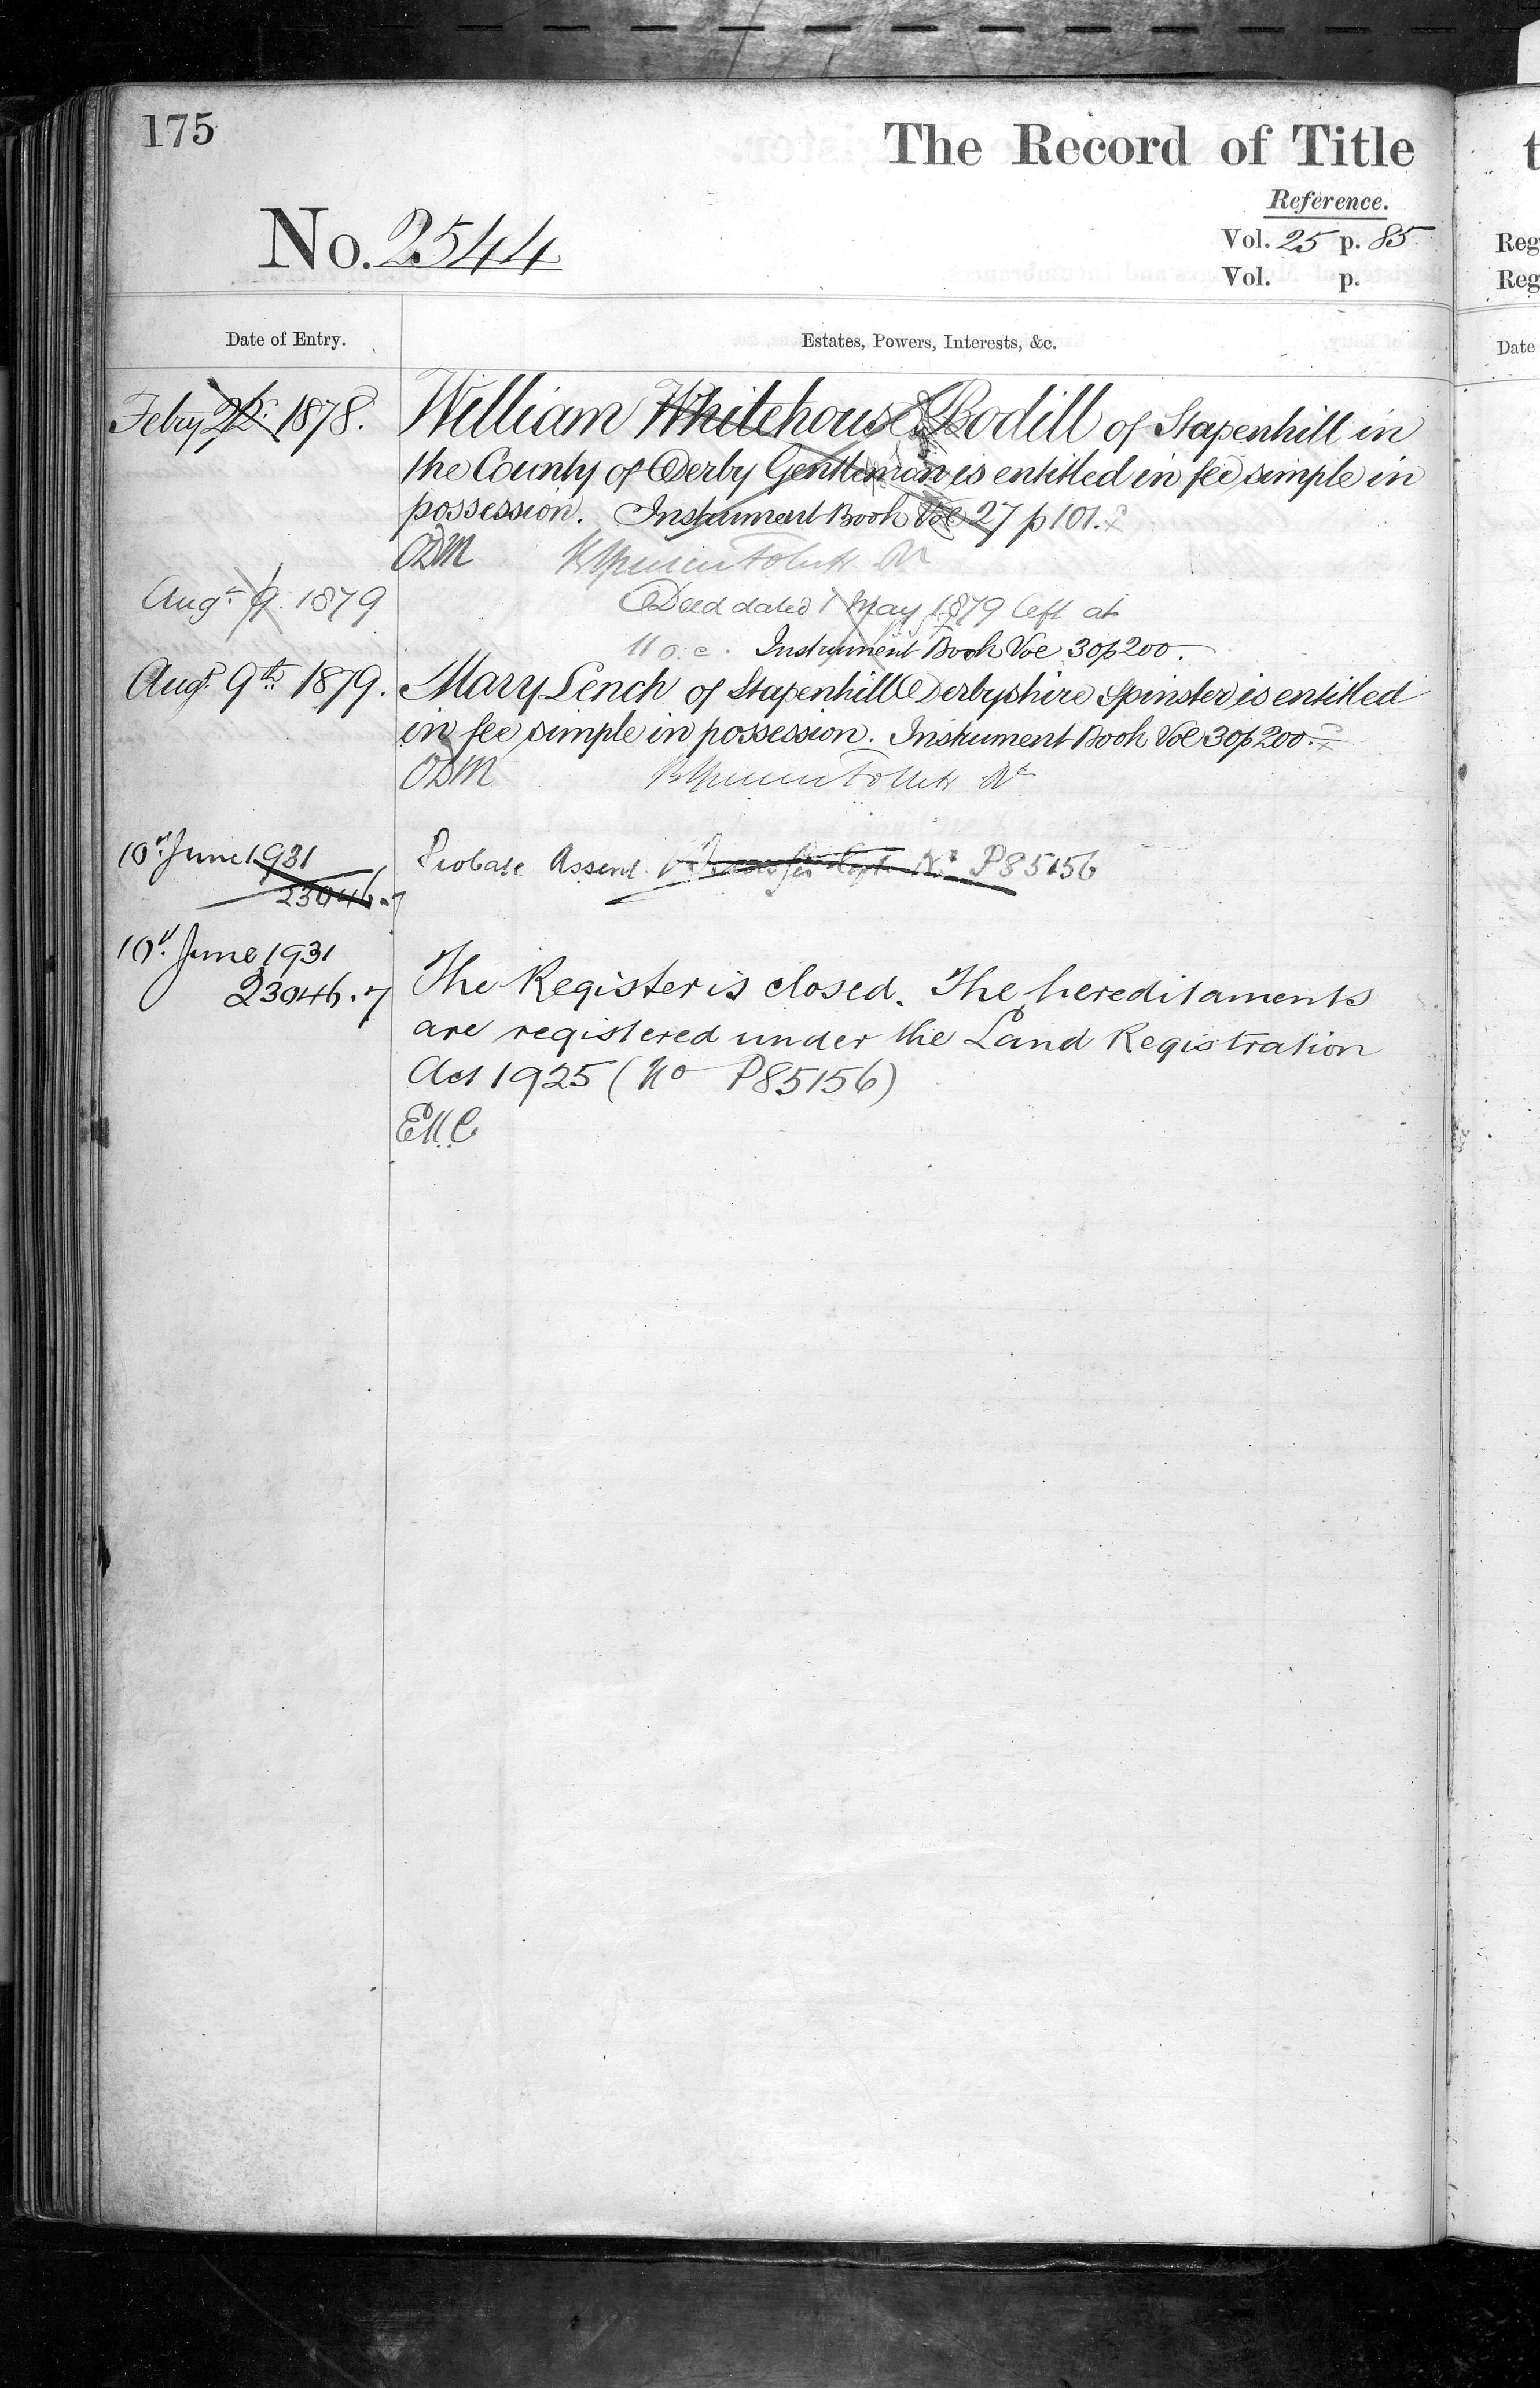 175
The Record of Title
Reference.
No. 2544
Vol. 25 p. 85
Vol. p.
Date of Entry.
Estates, Powers, Interests, &c.
Febry 22 1878.
William Whitehouse Bodill of Stapenhill in
the County of Derby Gentleman is entitled in fee simple in
possession. Instrument Book Vol 27 p 101.
ODM
Augt 9. 1879
Deed dated 1 May 1879 left at
11 o.c. Instrument Book Vol 30 p 200.
Augt 9th 1879.
Mary Lench of Stapenhill Derbyshire Spinster is entitled
in fee simple in possession. Instrument Book Vol 30 p 200.
ODM
10th June 1931
Probate Assent No P85156
23046.7
10th June 1931
23046.7
The Register is closed. The hereditaments
are registered under the Land Registration
Act 1925 (No P85156)
t
Reg
Reg
Date